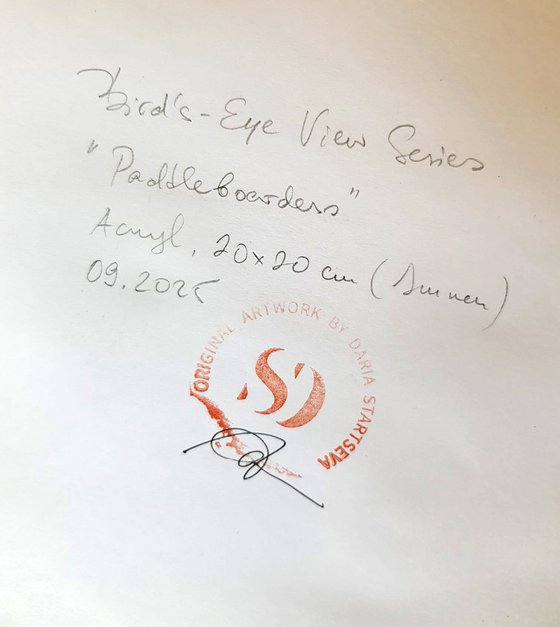 Bird's-Eye View Series
"Paddleboarders"
Acryl, 20x20 cm
09.2025
ORIGINAL ARTWORK BY DARIA STARTSEVA